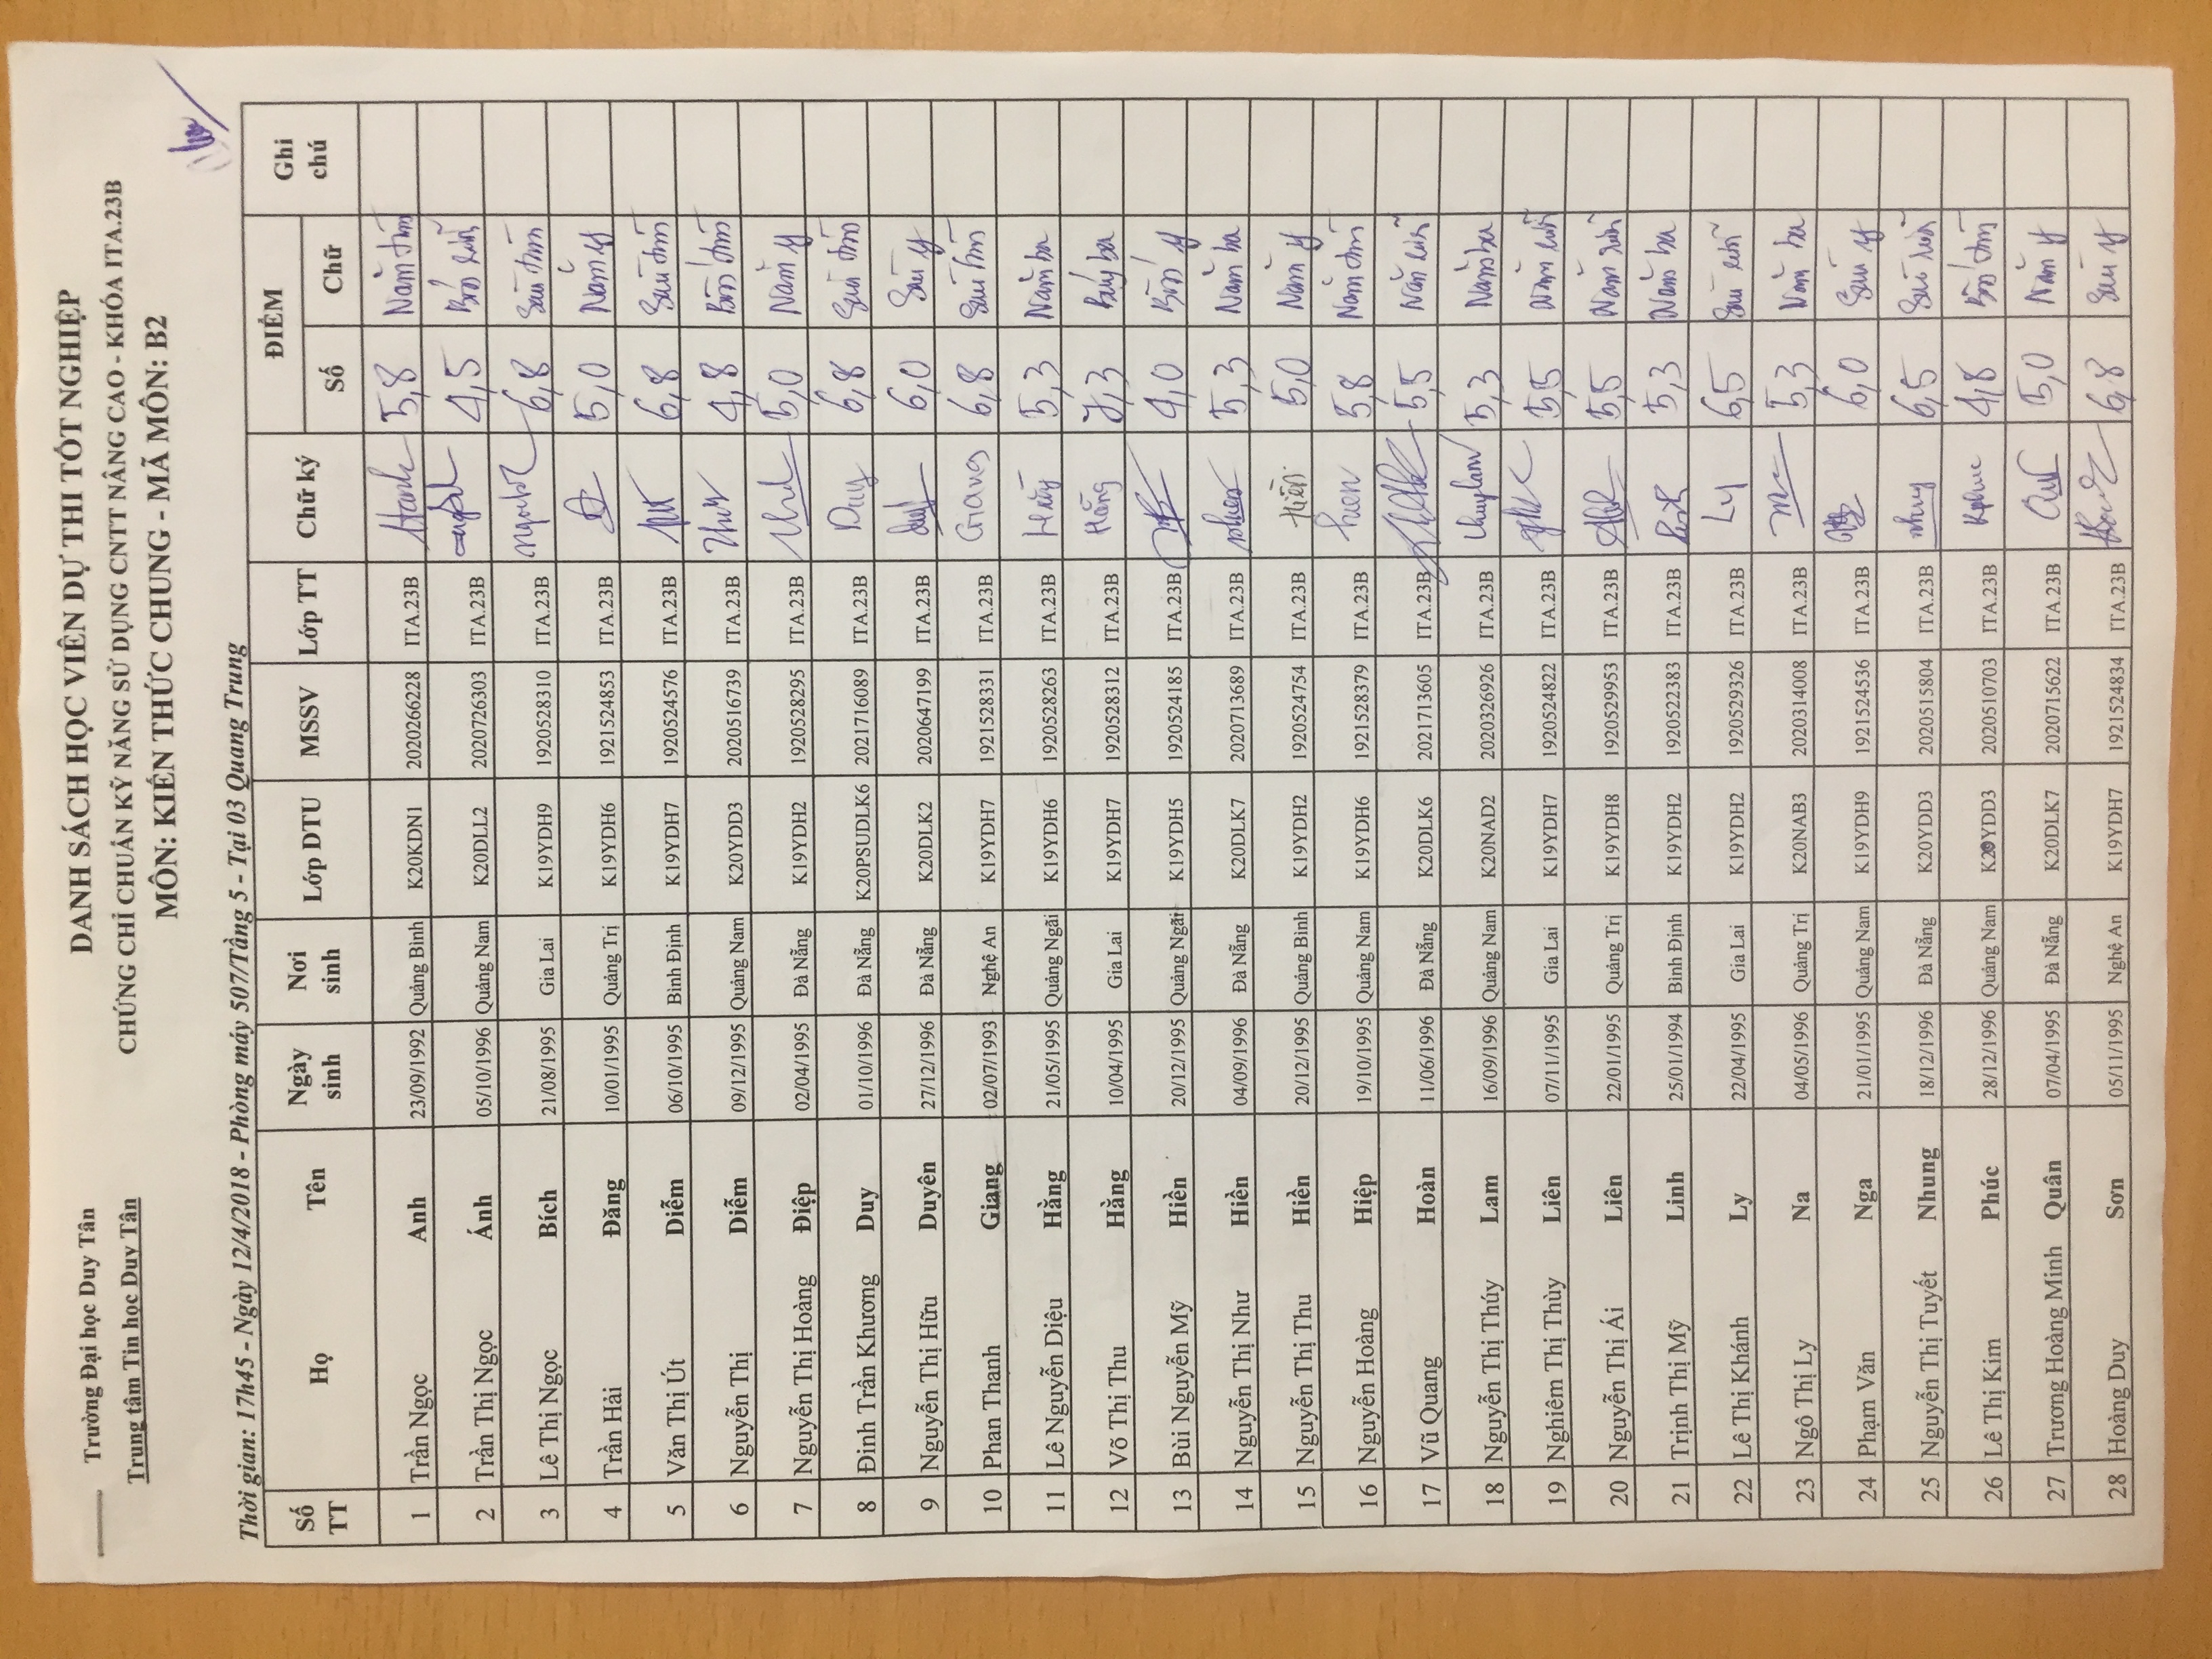 Trường Đại học Duy Tân
Trung tâm Tin học Duy Tân
DANH SÁCH HỌC VIÊN DỰ THI TỐT NGHIỆP
CHỨNG CHỈ CHUẨN KỸ NĂNG SỬ DỤNG CNTT NÂNG CAO - KHÓA ITA.23B
MÔN: KIẾN THỨC CHUNG - MÃ MÔN: B2
Thời gian: 17h45 - Ngày 12/4/2018 - Phòng máy 507/Tầng 5 - Tại 03 Quang Trung
Số TT Họ Tên Ngày sinh Nơi sinh Lớp DTU MSSV Lớp TT Chữ ký ĐIỂM Số Chữ Ghi chú
1 Trần Ngọc Anh 23/09/1992 Quảng Bình K20KDN1 2020266228 ITA.23B 5,8 Năm tám
2 Trần Thị Ngọc Ánh 05/10/1996 Quảng Nam K20DLL2 2020726303 ITA.23B 4,5 Bốn rưỡi
3 Lê Thị Ngọc Bích 21/08/1995 Gia Lai K19YDH9 1920528310 ITA.23B 6,8 Sáu tám
4 Trần Hải Đăng 10/01/1995 Quảng Trị K19YDH6 1921524853 ITA.23B 5,0 Năm y
5 Văn Thị Út Diễm 06/10/1995 Bình Định K19YDH7 1920524576 ITA.23B 6,8 Sáu tám
6 Nguyễn Thị Diễm 09/12/1995 Quảng Nam K20YDD3 2020516739 ITA.23B 4,8 Bốn tám
7 Nguyễn Thị Hoàng Điệp 02/04/1995 Đà Nẵng K19YDH2 1920528295 ITA.23B 5,0 Năm y
8 Đinh Trần Khương Duy 01/10/1996 Đà Nẵng K20PSUDLK6 2021716089 ITA.23B Duy 6,8 Sáu tám
9 Nguyễn Thị Hữu Duyên 27/12/1996 Đà Nẵng K20DLK2 2020647199 ITA.23B 6,0 Sáu y
10 Phan Thanh Giang 02/07/1993 Nghệ An K19YDH7 1921528331 ITA.23B Giang 6,8 Sáu tám
11 Lê Nguyễn Diệu Hằng 21/05/1995 Quảng Ngãi K19YDH6 1920528263 ITA.23B Hằng 5,3 Năm ba
12 Võ Thị Thu Hằng 10/04/1995 Gia Lai K19YDH7 1920528312 ITA.23B Hằng 7,3 Bảy ba
13 Bùi Nguyễn Mỹ Hiền 20/12/1995 Quảng Ngãi K19YDH5 1920524185 ITA.23B 4,0 Bốn y
14 Nguyễn Thị Như Hiền 04/09/1996 Đà Nẵng K20DLK7 2020713689 ITA.23B 5,3 Năm ba
15 Nguyễn Thị Thu Hiền 20/12/1995 Quảng Bình K19YDH2 1920524754 ITA.23B Hiền 5,0 Năm y
16 Nguyễn Hoàng Hiệp 19/10/1995 Quảng Nam K19YDH6 1921528379 ITA.23B 5,8 Năm tám
17 Vũ Quang Hoàn 11/06/1996 Đà Nẵng K20DLK6 2021713605 ITA.23B 5,5 Năm rưỡi
18 Nguyễn Thị Thúy Lam 16/09/1996 Quảng Nam K20NAD2 2020326926 ITA.23B 5,3 Năm ba
19 Nghiêm Thị Thùy Liên 07/11/1995 Gia Lai K19YDH7 1920524822 ITA.23B 5,5 Năm rưỡi
20 Nguyễn Thị Ái Liên 22/01/1995 Quảng Trị K19YDH8 1920529953 ITA.23B 5,5 Năm rưỡi
21 Trịnh Thị Mỹ Linh 25/01/1994 Bình Định K19YDH2 1920522383 ITA.23B 5,3 Năm ba
22 Lê Thị Khánh Ly 22/04/1995 Gia Lai K19YDH2 1920529326 ITA.23B Ly 6,5 Sáu rưỡi
23 Ngô Thị Ly Na 04/05/1996 Quảng Trị K20NAB3 2020314008 ITA.23B 5,3 Năm ba
24 Phạm Văn Nga 21/01/1995 Quảng Nam K19YDH9 1921524536 ITA.23B 6,0 Sáu y
25 Nguyễn Thị Tuyết Nhung 18/12/1996 Đà Nẵng K20YDD3 2020515804 ITA.23B 6,5 Sáu rưỡi
26 Lê Thị Kim Phúc 28/12/1996 Quảng Nam K20YDD3 2020510703 ITA.23B 4,8 Bốn tám
27 Trương Hoàng Minh Quân 07/04/1995 Đà Nẵng K20DLK7 2020715622 ITA.23B 5,0 Năm y
28 Hoàng Duy Sơn 05/11/1995 Nghệ An K19YDH7 1921524834 ITA.23B 6,8 Sáu